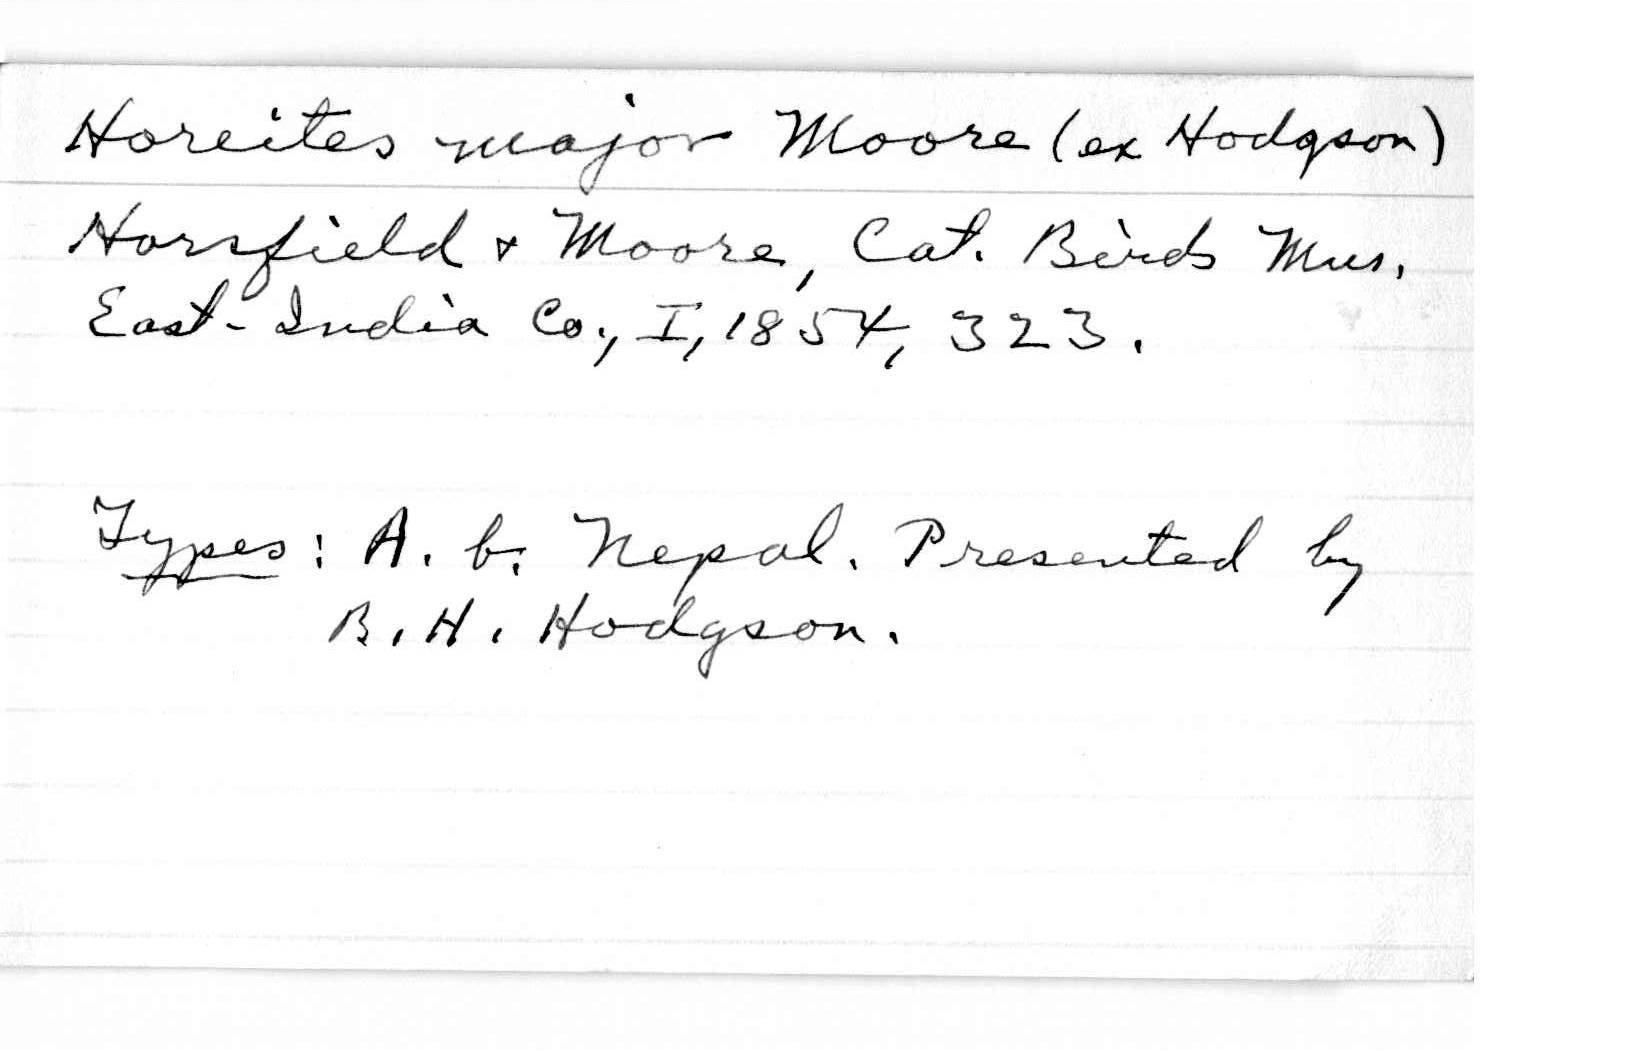 Horeites major Moore (ex Hodgson)
Horsfield & Moore, Cat. Birds Mus.
East-India Co., I, 1854, 323.
Types: A. b. Nepal. Presented by
B. H. Hodgson.